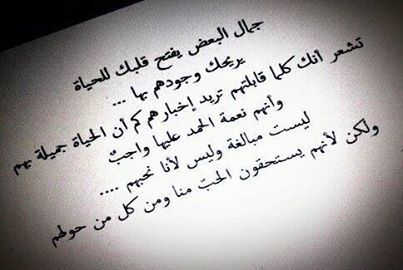 جمال البعض يفتح قلبك للحياة
يريحك وجودهم بها ...
تشعر أنك كلما قابلتهم تريد إخبارهم كم أن الحياة جميلة بهم
وأنهم نعمة الحمد عليها واجبٌ
ليست مبالغة وليس لأنا نحبهم ....
ولكن لأنهم يستحقون الحبّ منا ومن كل من حولهم